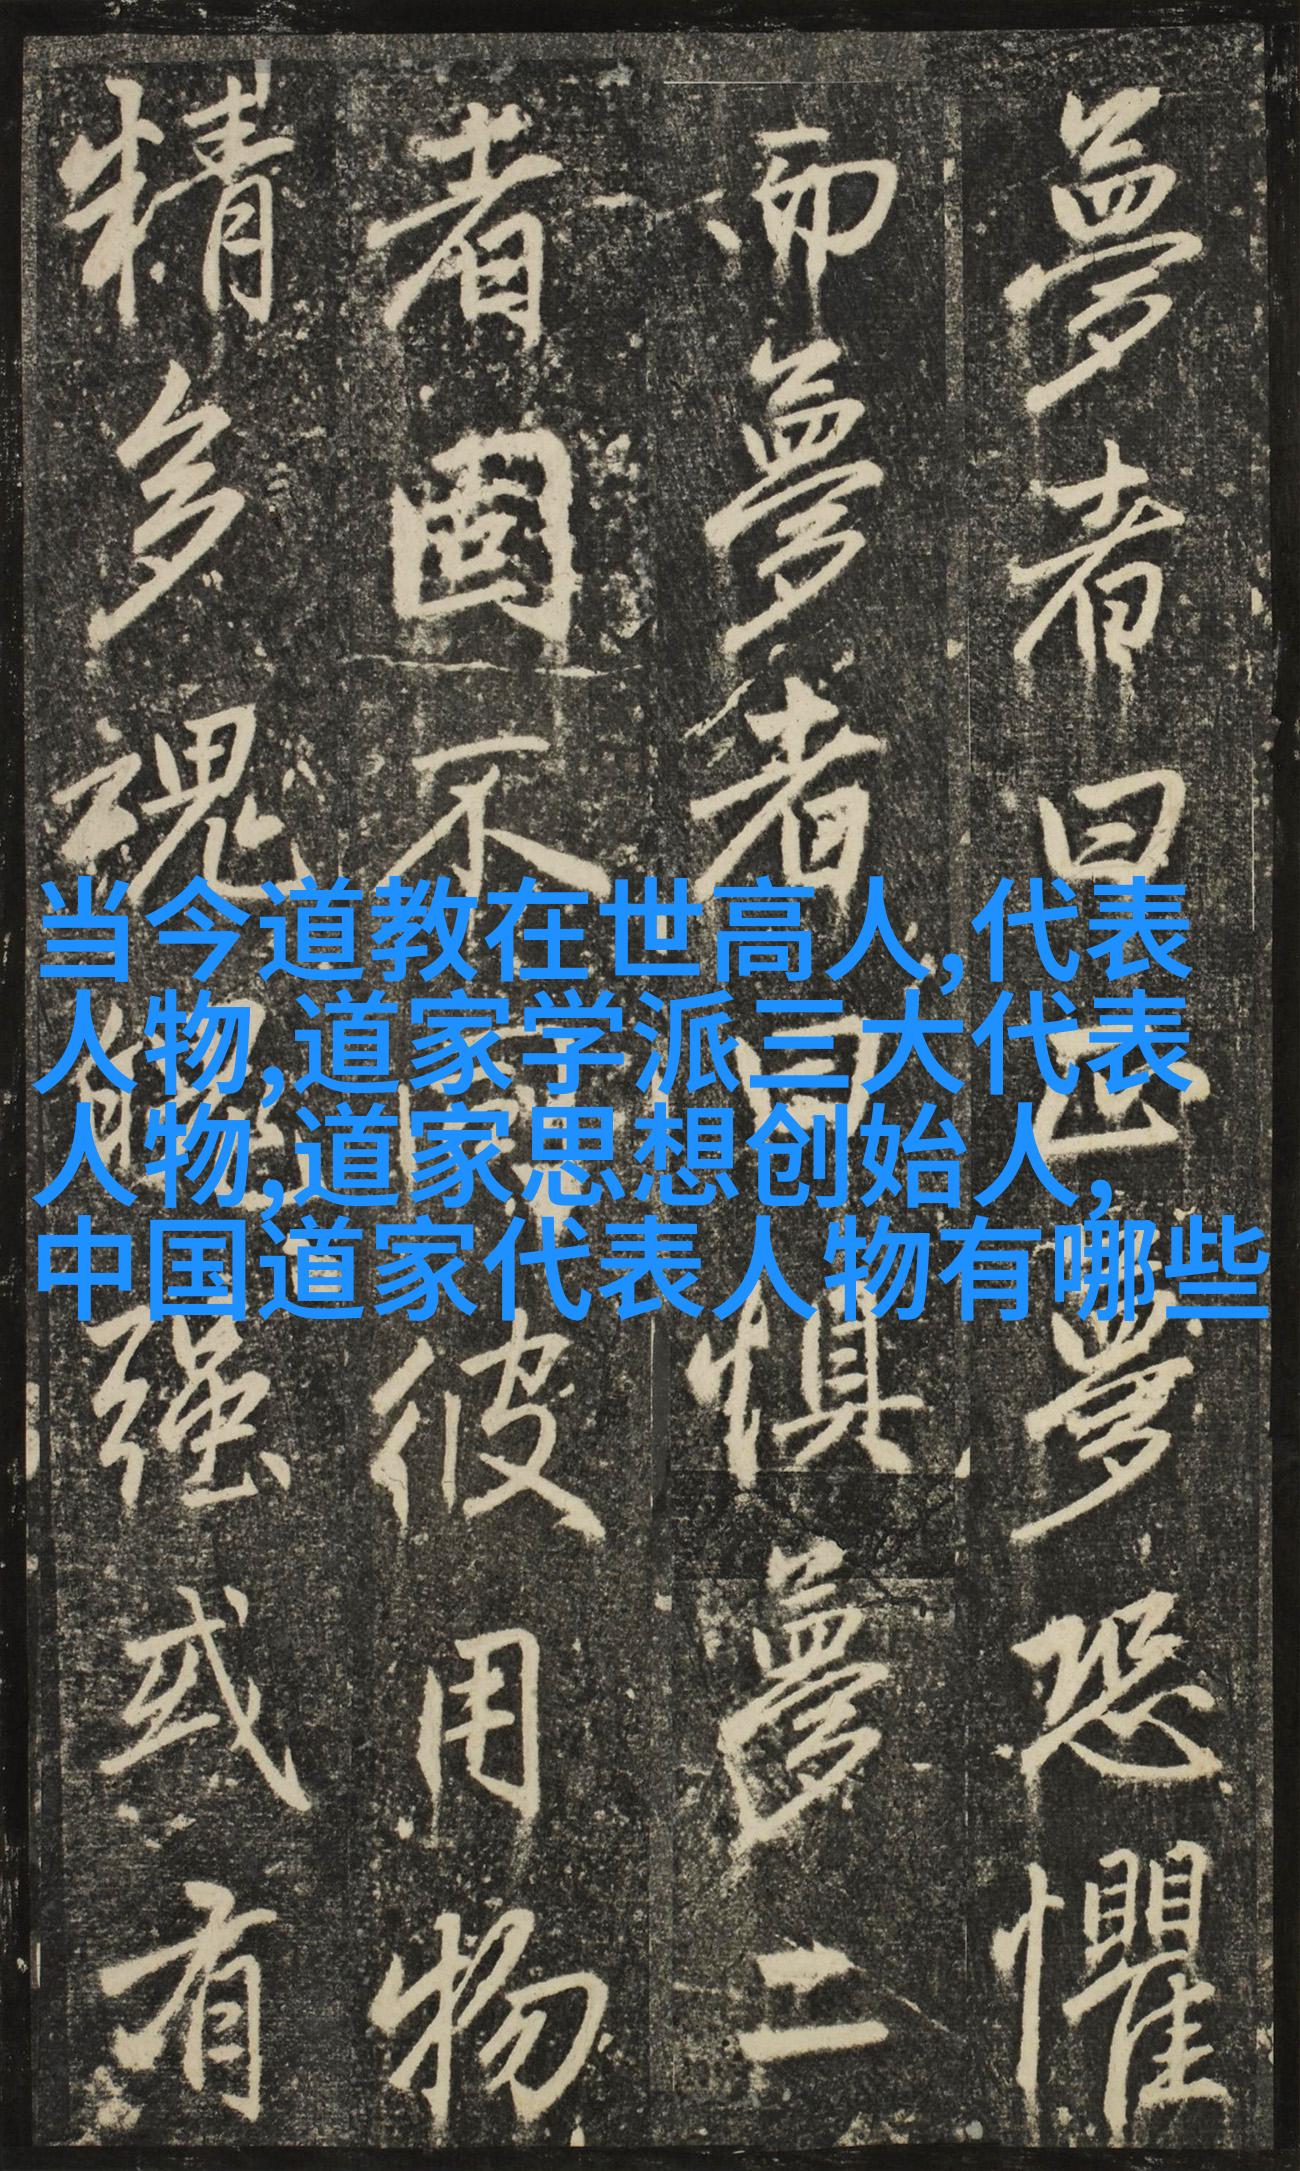 夢者曰正夢恐懼
而夢者曰懼夢二
者固不彼用物
精多魂强或有
当今道教在世高人,代表
人物,道家学派三大代表
人物,道家思想创始人,
中国道家代表人物有哪些